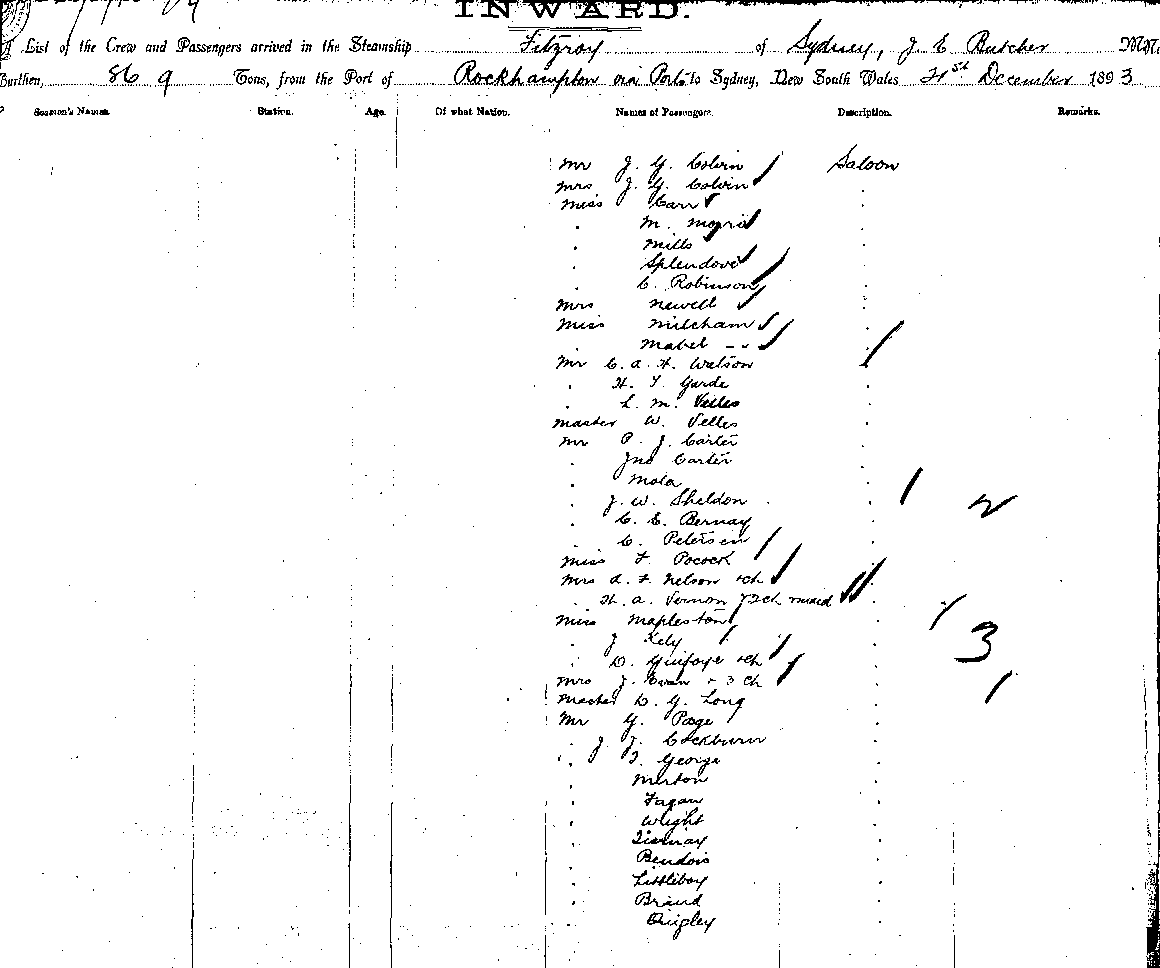 INWARD.
A List of the Crew and Passengers arrived in the Steamship Fitzroy of Sydney, J E Butcher
Burthen, 869 Tons, from the Port of Rockhampton via Ports to Sydney, New South Wales 21st December 1893
Seamen's Names. Station. Age. Of what Nation. Names of Passengers. Description. Remarks.
Mr J. G. Colvin Saloon
Mrs J. G. Colvin
Miss Carr
M.
Mills
C. Robinson
Mrs Newell
Miss Mitcham
Mabel
Mr C. A. H. Watson
H. T. Garde
L. M. Velles
Master W. Velles
Mr P. J. Carter
Jno Carter
J. W. Sheldon 2
C. E. Bernay
C. Petersen
Miss F. Pocock
Mrs A. F. Nelson +ch
H. A. Vernon 2 ch maid
Miss Mapleston
J 3
D. +ch
Mrs J. Evan + 3 ch
Master D. G. Long
Mr G. Page
J. J. Cockburn
T. George
Merton
Fagan
Wright
Littleboy
Braund
Quigley